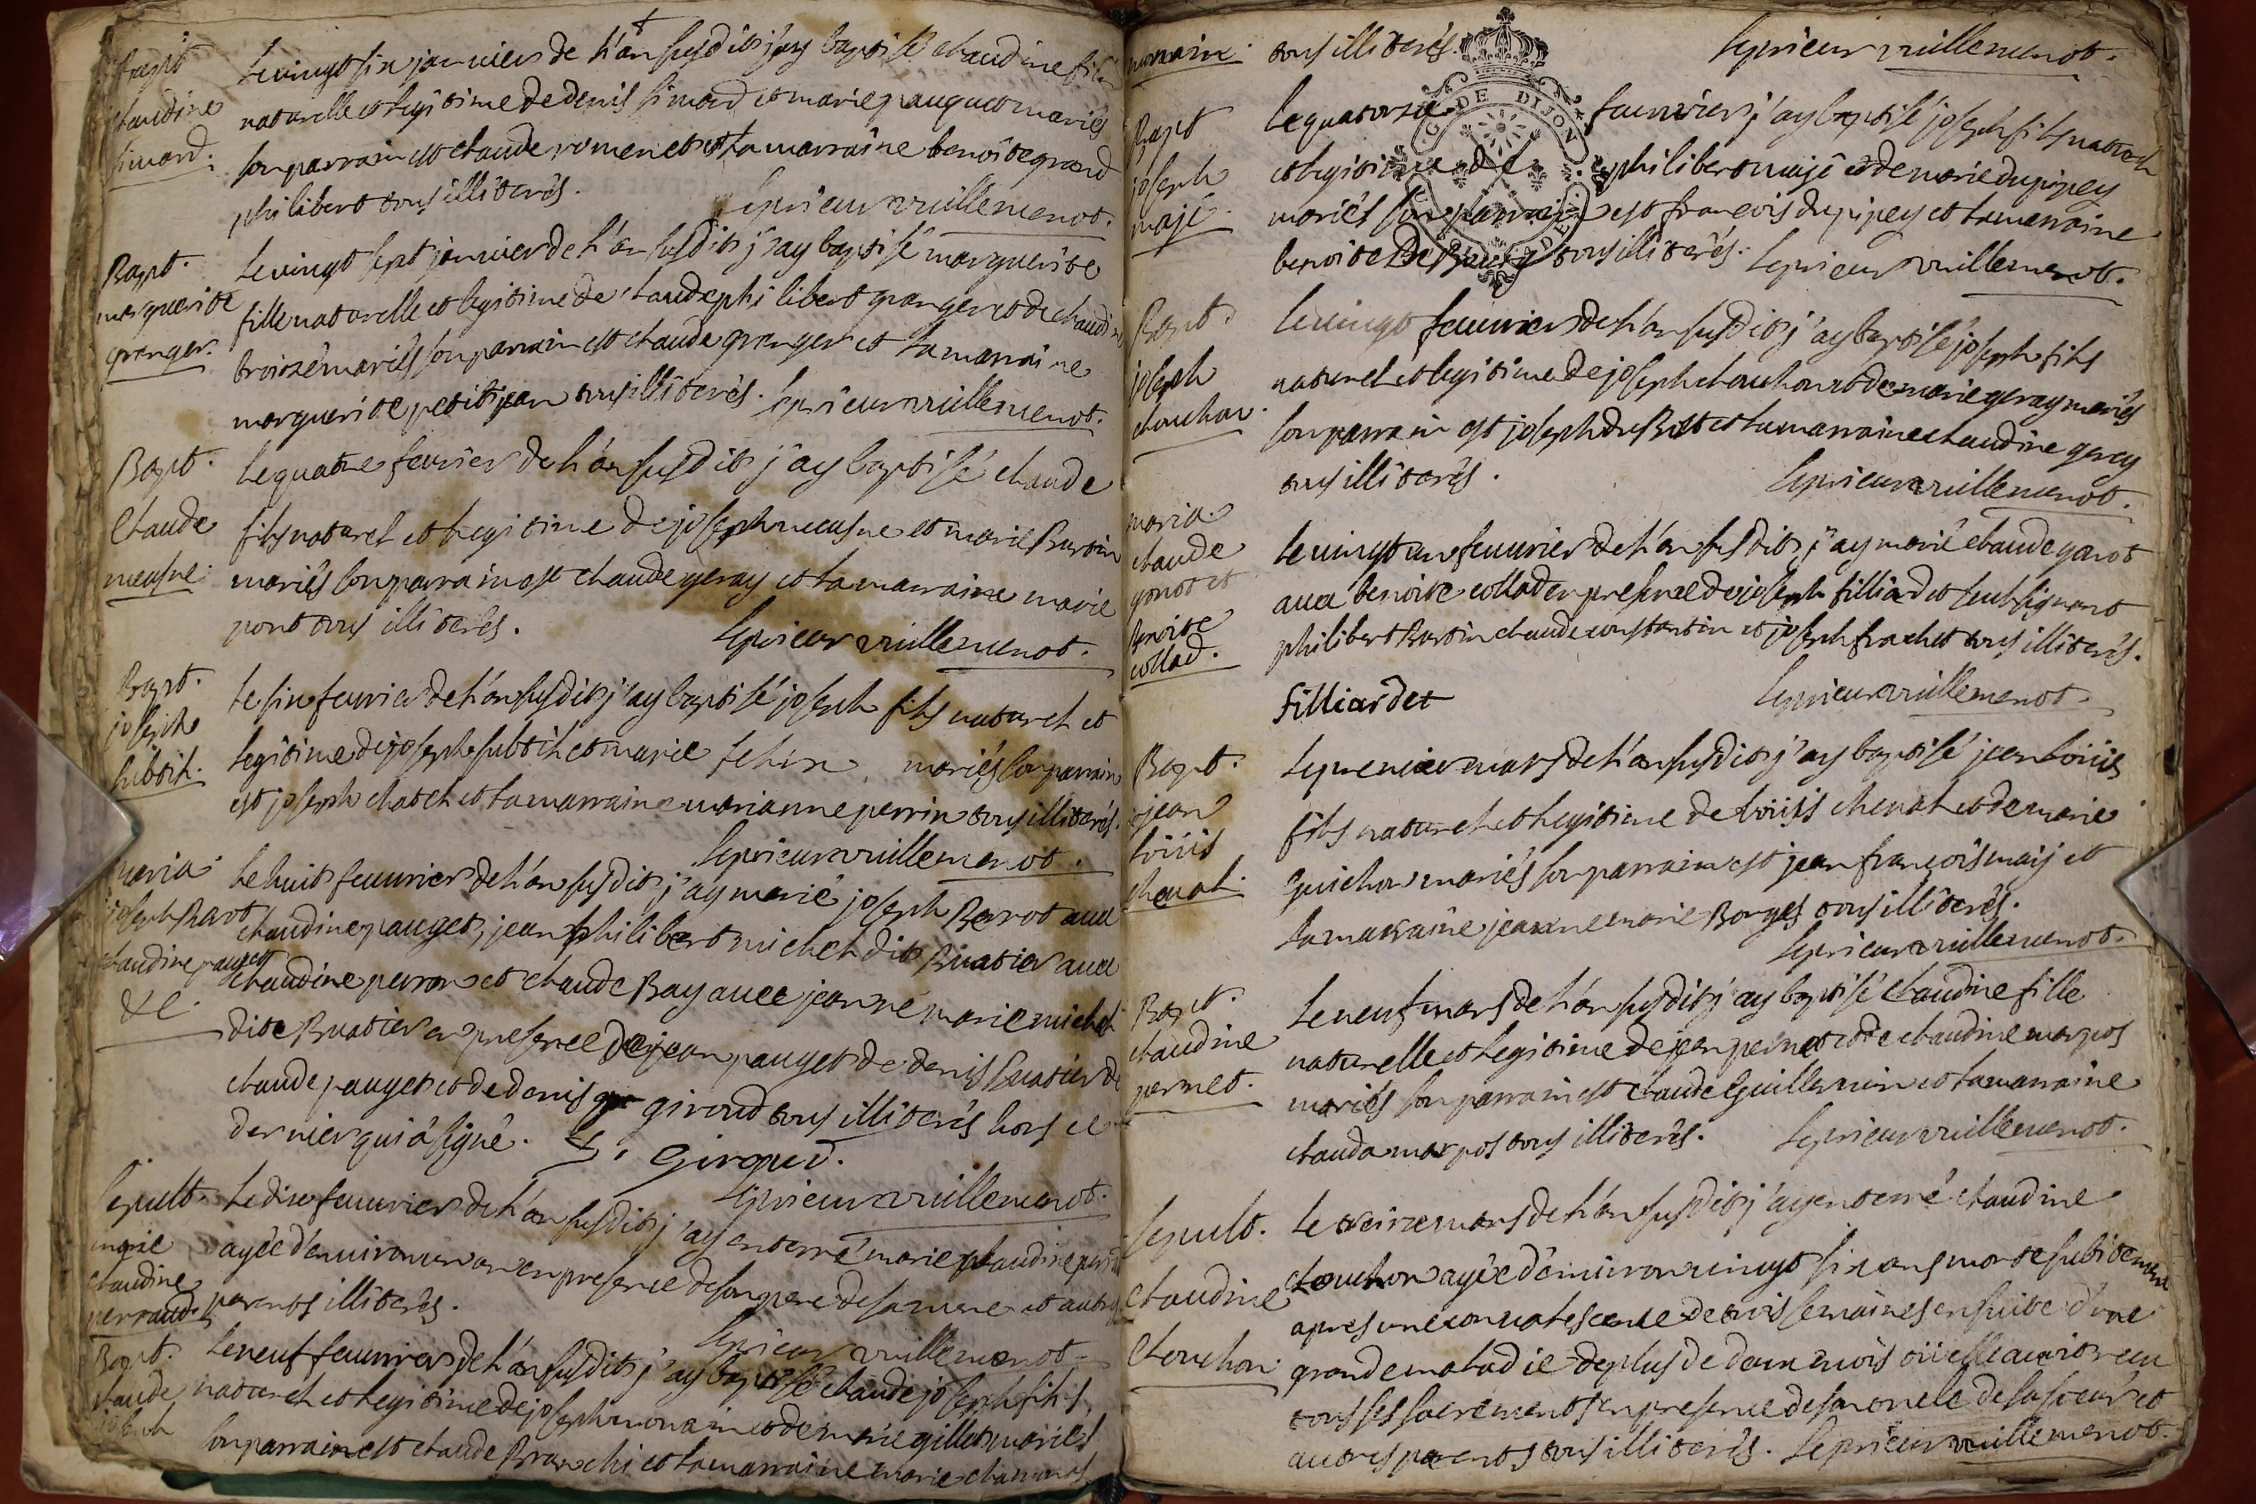 Bapt
claudine
simard.
Le vingt six janvier de l'an susdit j'ay baptisé claudine fille
naturelle et legitime de denis simard et marie pauguet mariés
son parrain est claude romenet et la marraine benoite grand
philibert tous illiterés.
leprieur vuillemenot.
Bapt.
marguerite
granger.
Le vingt sept janvier de l'an susdit j'ay baptisé marguerite
fille naturelle et legitime de claude philibert granger et de claudine
broisé mariés son parrain est claude granger et la marraine
marguerite petitjean tous illiterés. leprieur vuillemenot.
Bapt.
Claude
meusne.
Le quatre fevrier de l'an susdit j'ay baptisé claude
fils naturel et legitime de joseph meusne et marie Burtin
mariés son parrain est claude geray et la marraine marie
pont tous illiterés.
leprieur vuillemenot.
Bapt.
joseph
subtil.
Le six fevrier de l'an susdit j'ay baptisé joseph fils naturel et
legitime de joseph subtil et marie felix mariés son parrain
est joseph chatel et la marraine marianne perrin tous illiterés.
leprieur vuillemenot.
maria.
joseph Barot
claudine pauget
&c.
Le huit feuvrier de l'an susdit j'ay marié joseph Barot avec
claudine pauget, jean philibert michel dit Buatier avec
claudine perron et claude Bay avec jeanne marie michel
dite Buatier en presence de jean pauget de denis buatier de
claude pauget et de denis giroud tous illiterés hors ce
dernier qui a signé. D. Giroud.
leprieur vuillemenot.
Sepult.
marie
claudine
perraud
Le dix feuvrier de l'an susdit j'ay enterré marie claudine
agée d'environ un an en presence de son pere de sa mere et autres
parents illiterés.
leprieur vuillemenot.
Bapt.
claude
joseph
Le neuf feuvrier de l'an susdit j'ay baptisé claude joseph fils
naturel et legitime de joseph monain et de marie gillet mariés
son parrain est claude Branchi et la marraine marie
monain.
tous illiterés.
leprieur vuillemenot.
DE DIJON
Bapt
joseph
majé.
le quatorze feuvrier j'ay baptisé joseph fils naturel
et legitime de philibert majé et de marie dupipey
mariés son parrain est françois dupipey et la marraine
benoite De Boury tous illiterés. leprieur vuillemenot.
Bapt.
joseph
chouchou.
le vingt feuvrier de l'an susdit j'ay baptisé joseph fils
naturel et legitime de joseph chouchou et de marie geray mariés
son parrain est joseph duBost et la marraine claudine geray
tous illiterés.
leprieur vuillemenot.
maria.
claude
gonot et
Benoite
collad.
Le vingt un feuvrier de l'an susdit j'ay marié claude gonot
avec benoite collad en presence de joseph filliard et seul signant
philibert Burtin claude constantin et joseph frachet tous illiterés.
filliardet
leprieur vuillemenot.
Bapt.
jean
loüis
chenal.
Le premier mars de l'an susdit j'ay baptisé jean loüis
fils naturel et legitime de loüis chenal et de marie
Guichon mariés son parrain est jean françois maij et
la marraine jeanne marie Borges tous illiterés.
leprieur vuillemenot.
Bapt.
claudine
pernet.
Le neuf mars de l'an susdit j'ay baptisé claudine fille
naturelle et legitime de jean pernet et de claudine marpos
mariés son parrain est claude Guillemin et la marraine
clauda marpos tous illiterés.
leprieur vuillemenot.
Sepult.
claudine
chouchou
Le treize mars de l'an susdit j'ay enterré claudine
chouchou agée d'environ vingt six ans morte subitement
apres une convalescence de trois semaines en suite d'une
grande maladie de plus de deux mois où elle avoit reçu
tous ses sacrements en presence de son oncle de sa soeur et
autres parents tous illiterés. leprieur vuillemenot.